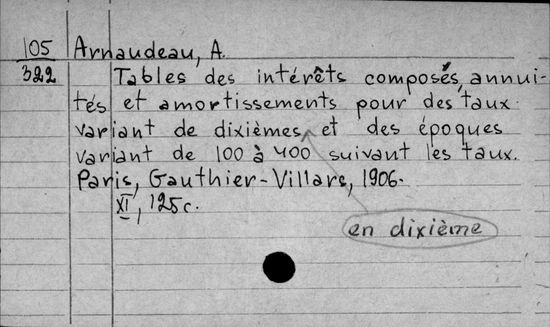 105 Arnaudeau, A.
322 Tables des intérêts composés, annui-
tés et amortissements pour des taux
variant de dixièmes et des époques
variant de 100 à 400 suivant les taux.
Paris, Gauthier-Villars, 1906.
XI, 125c.
en dixième